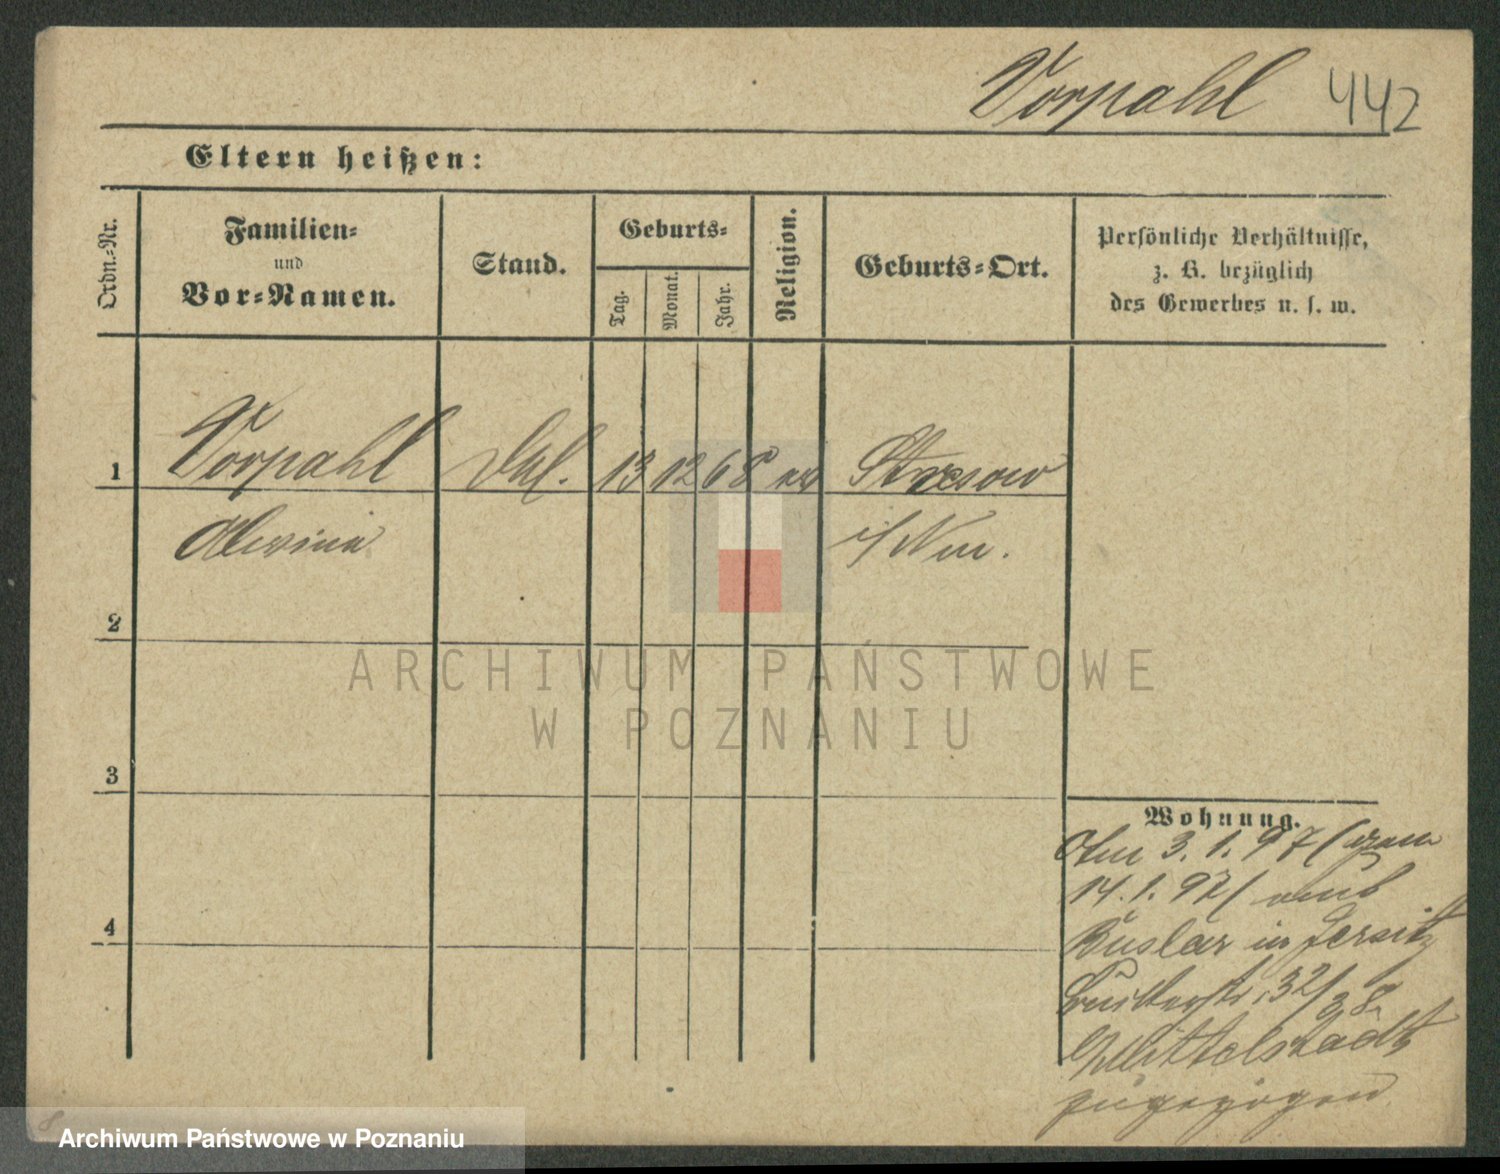 Vorpahl 442
Eltern heißen:
Ordn.-Nr.
Familien-
und
Vor-Namen.
Stand.
Geburts-
Tag.
Monat.
Jahr.
Religion.
Geburts-Ort.
Persönliche Verhältnisse,
z. B. bezüglich
des Gewerbes u. s. w.
1 Vorpahl 13 12 68 ev Stresow
Alwine
i/
2
3
4
Wohnung.
3. 1. 97 (gem
14. 1. 97) aus
Buslar in Jersitz
32/38
Mittelstadt
zugezogen
ARCHIWUM PAŃSTWOWE
W POZNANIU
Archiwum Państwowe w Poznaniu